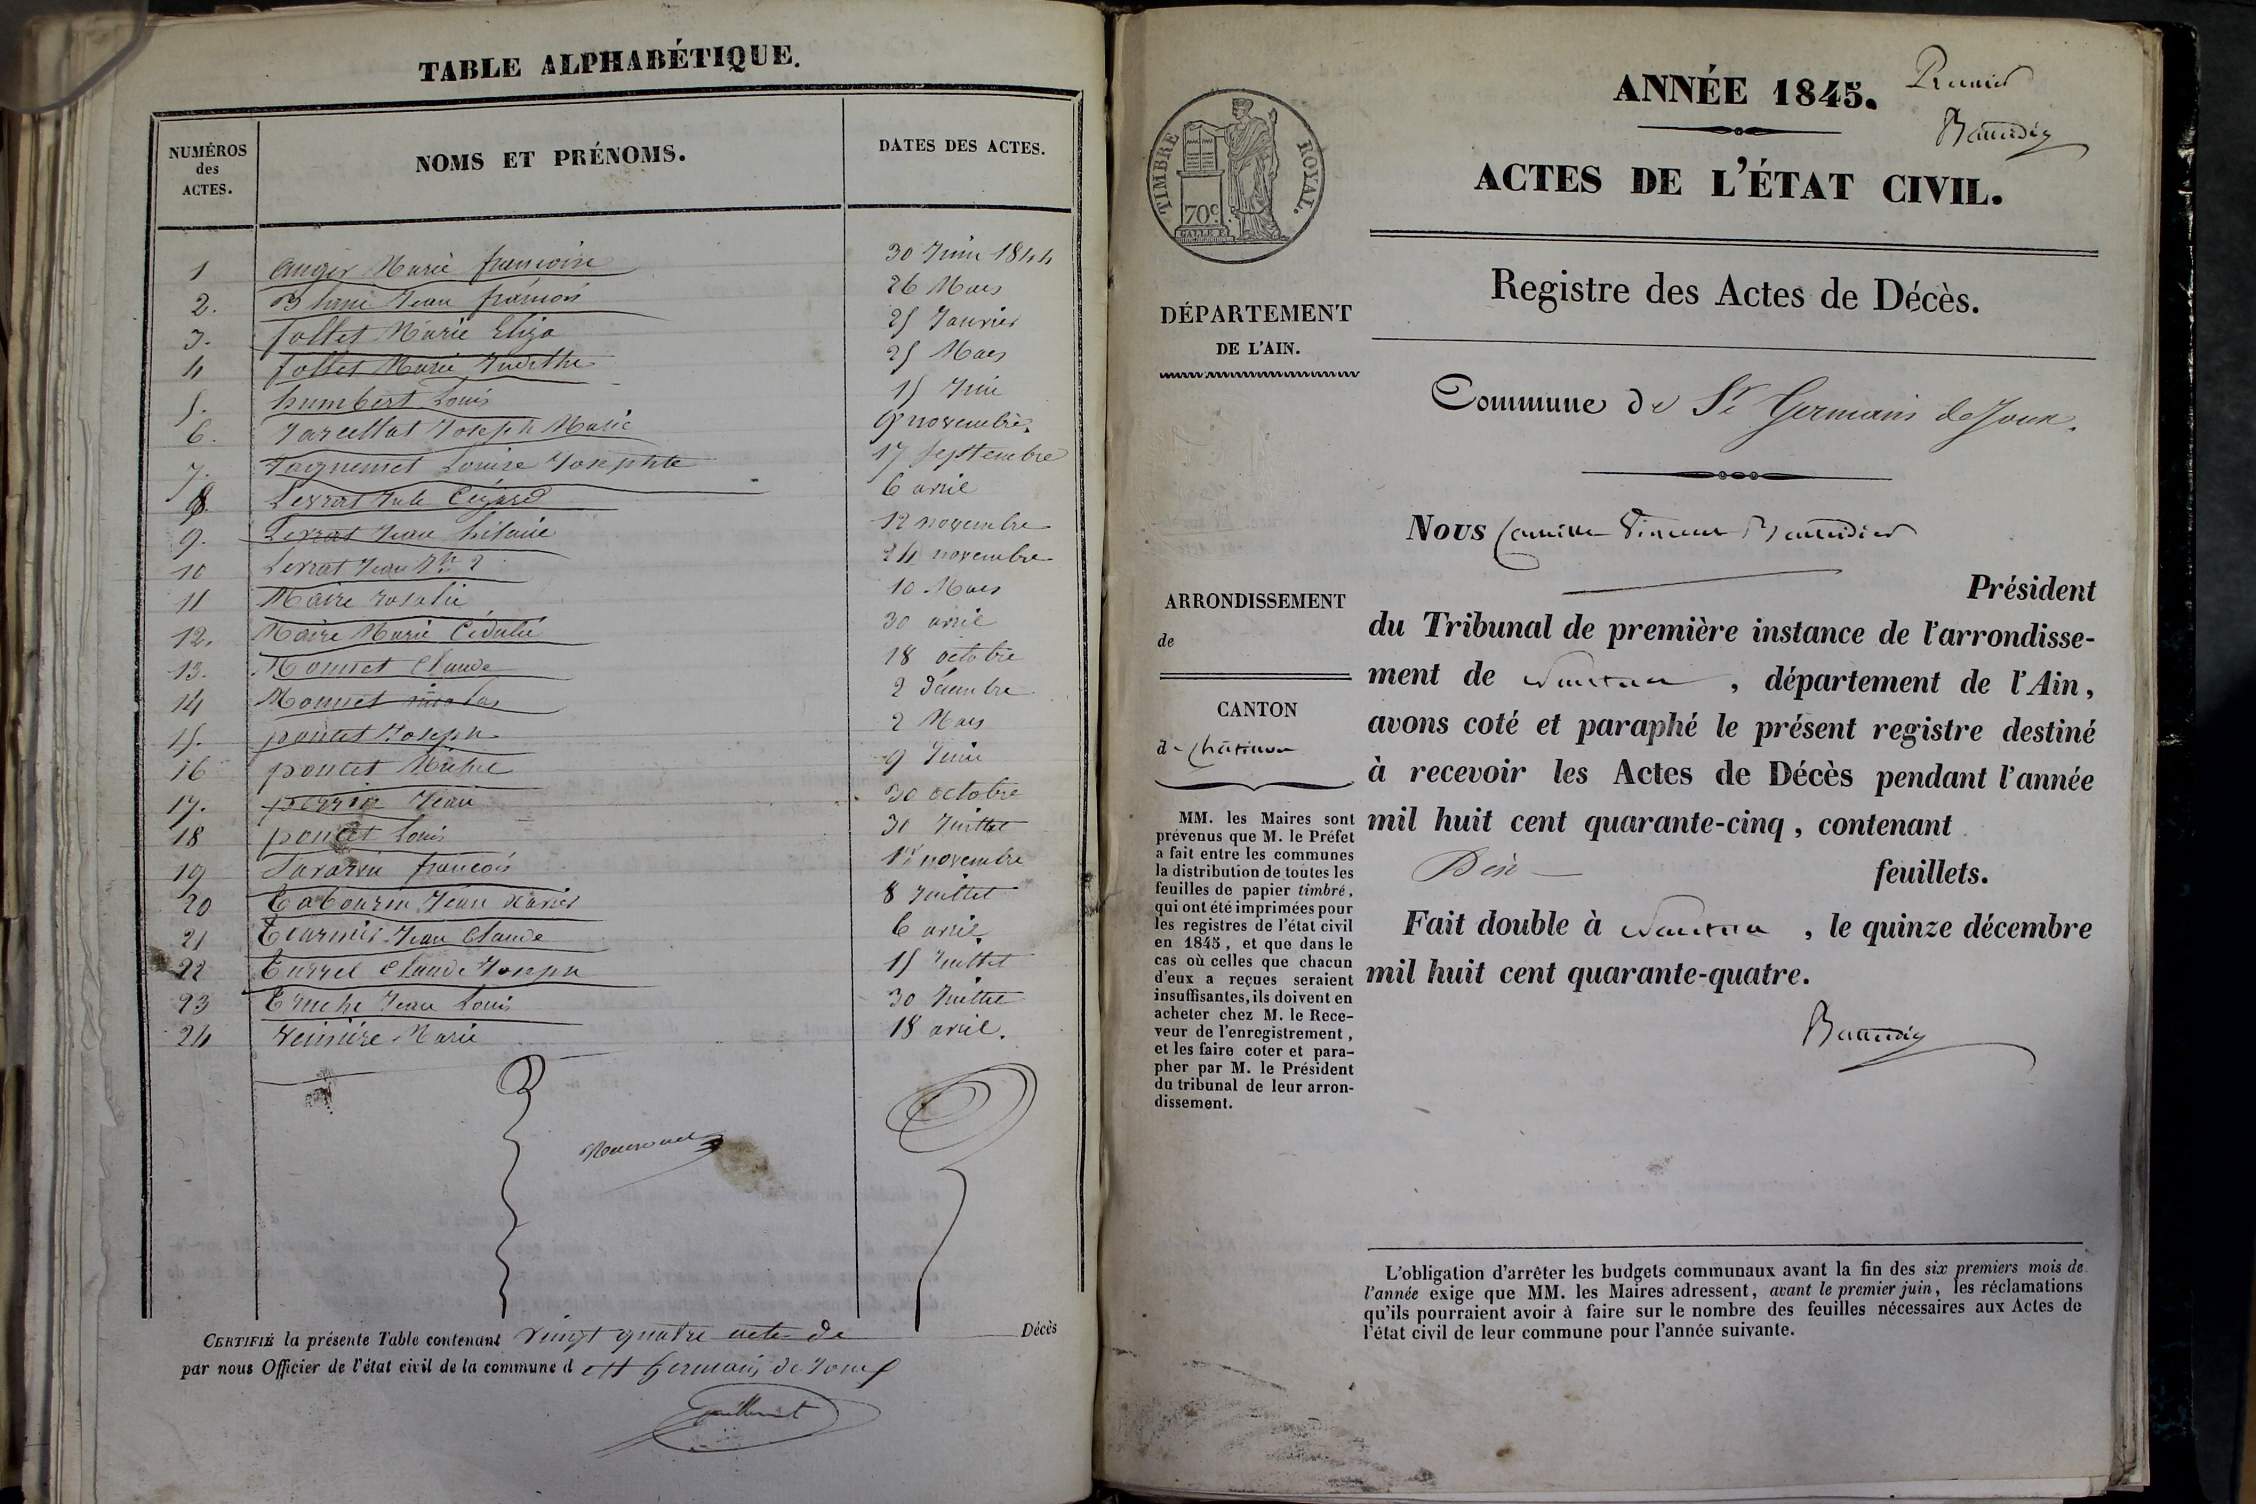 TABLE ALPHABÉTIQUE.
NUMÉROS
des
ACTES.
NOMS ET PRÉNOMS.
DATES DES ACTES.
1 Anger Marie françoise 30 Juin 1844
2. Blanc Jean françois 26 Mars
3. follet Marie Eliza 25 Janvier
4 follet Marie Judithe 25 Mars
5. humbert Louis 15 Juin
6. Jarcellat Joseph Marie 9 novembre.
7. Jagnemet Louise Josephte 17 septembre
8. Levrat Jule 6 avril
9. Levrat Jean hilaire 12 novembre
10 Levrat Jean 24 novembre
11 Maire rosalie 10 Mars
12. Maire Marie 30 avril
13. Monnet Claude 18 octobre
14 Monnet nicolas 2 décembre
15. poncet Joseph 2 Mars
16 poncet Michel 9 Juin
17. perrin Jean 30 octobre
18 poncet Louis 31 Juillet
19 Savarin françois 1er novembre
20 Tabourin Jean Xavier 8 Juillet
21 Jean Claude 6 avril
22 Turrel Claude Joseph 15 Juillet
23 Truche Jean Louis 30 Juillet
24 Marie 18 avril.
CERTIFIÉ la présente Table contenant vingt quatre acte de Décès
par nous Officier de l'état civil de la commune d St Germain de Joux
ANNÉE 1845.
ACTES DE L'ÉTAT CIVIL.
TIMBRE ROYAL.
70c.
Registre des Actes de Décès.
DÉPARTEMENT
DE L'AIN.
Commune de St Germain de Joux.
Nous Camille Vincent
Président
ARRONDISSEMENT
de
du Tribunal de première instance de l'arrondisse-
ment de Nantua, département de l'Ain,
CANTON
de Châtillon
avons coté et paraphé le présent registre destiné
à recevoir les Actes de Décès pendant l'année
mil huit cent quarante-cinq, contenant
Dix feuillets.
Fait double à Nantua, le quinze décembre
mil huit cent quarante-quatre.
MM. les Maires sont
prévenus que M. le Préfet
a fait entre les communes
la distribution de toutes les
feuilles de papier timbré,
qui ont été imprimées pour
les registres de l'état civil
en 1845, et que dans le
cas où celles que chacun
d'eux a reçues seraient
insuffisantes, ils doivent en
acheter chez M. le Rece-
veur de l'enregistrement,
et les faire coter et para-
pher par M. le Président
du tribunal de leur arron-
dissement.
L'obligation d'arrêter les budgets communaux avant la fin des six premiers mois de
l'année exige que MM. les Maires adressent, avant le premier juin, les réclamations
qu'ils pourraient avoir à faire sur le nombre des feuilles nécessaires aux Actes de
l'état civil de leur commune pour l'année suivante.